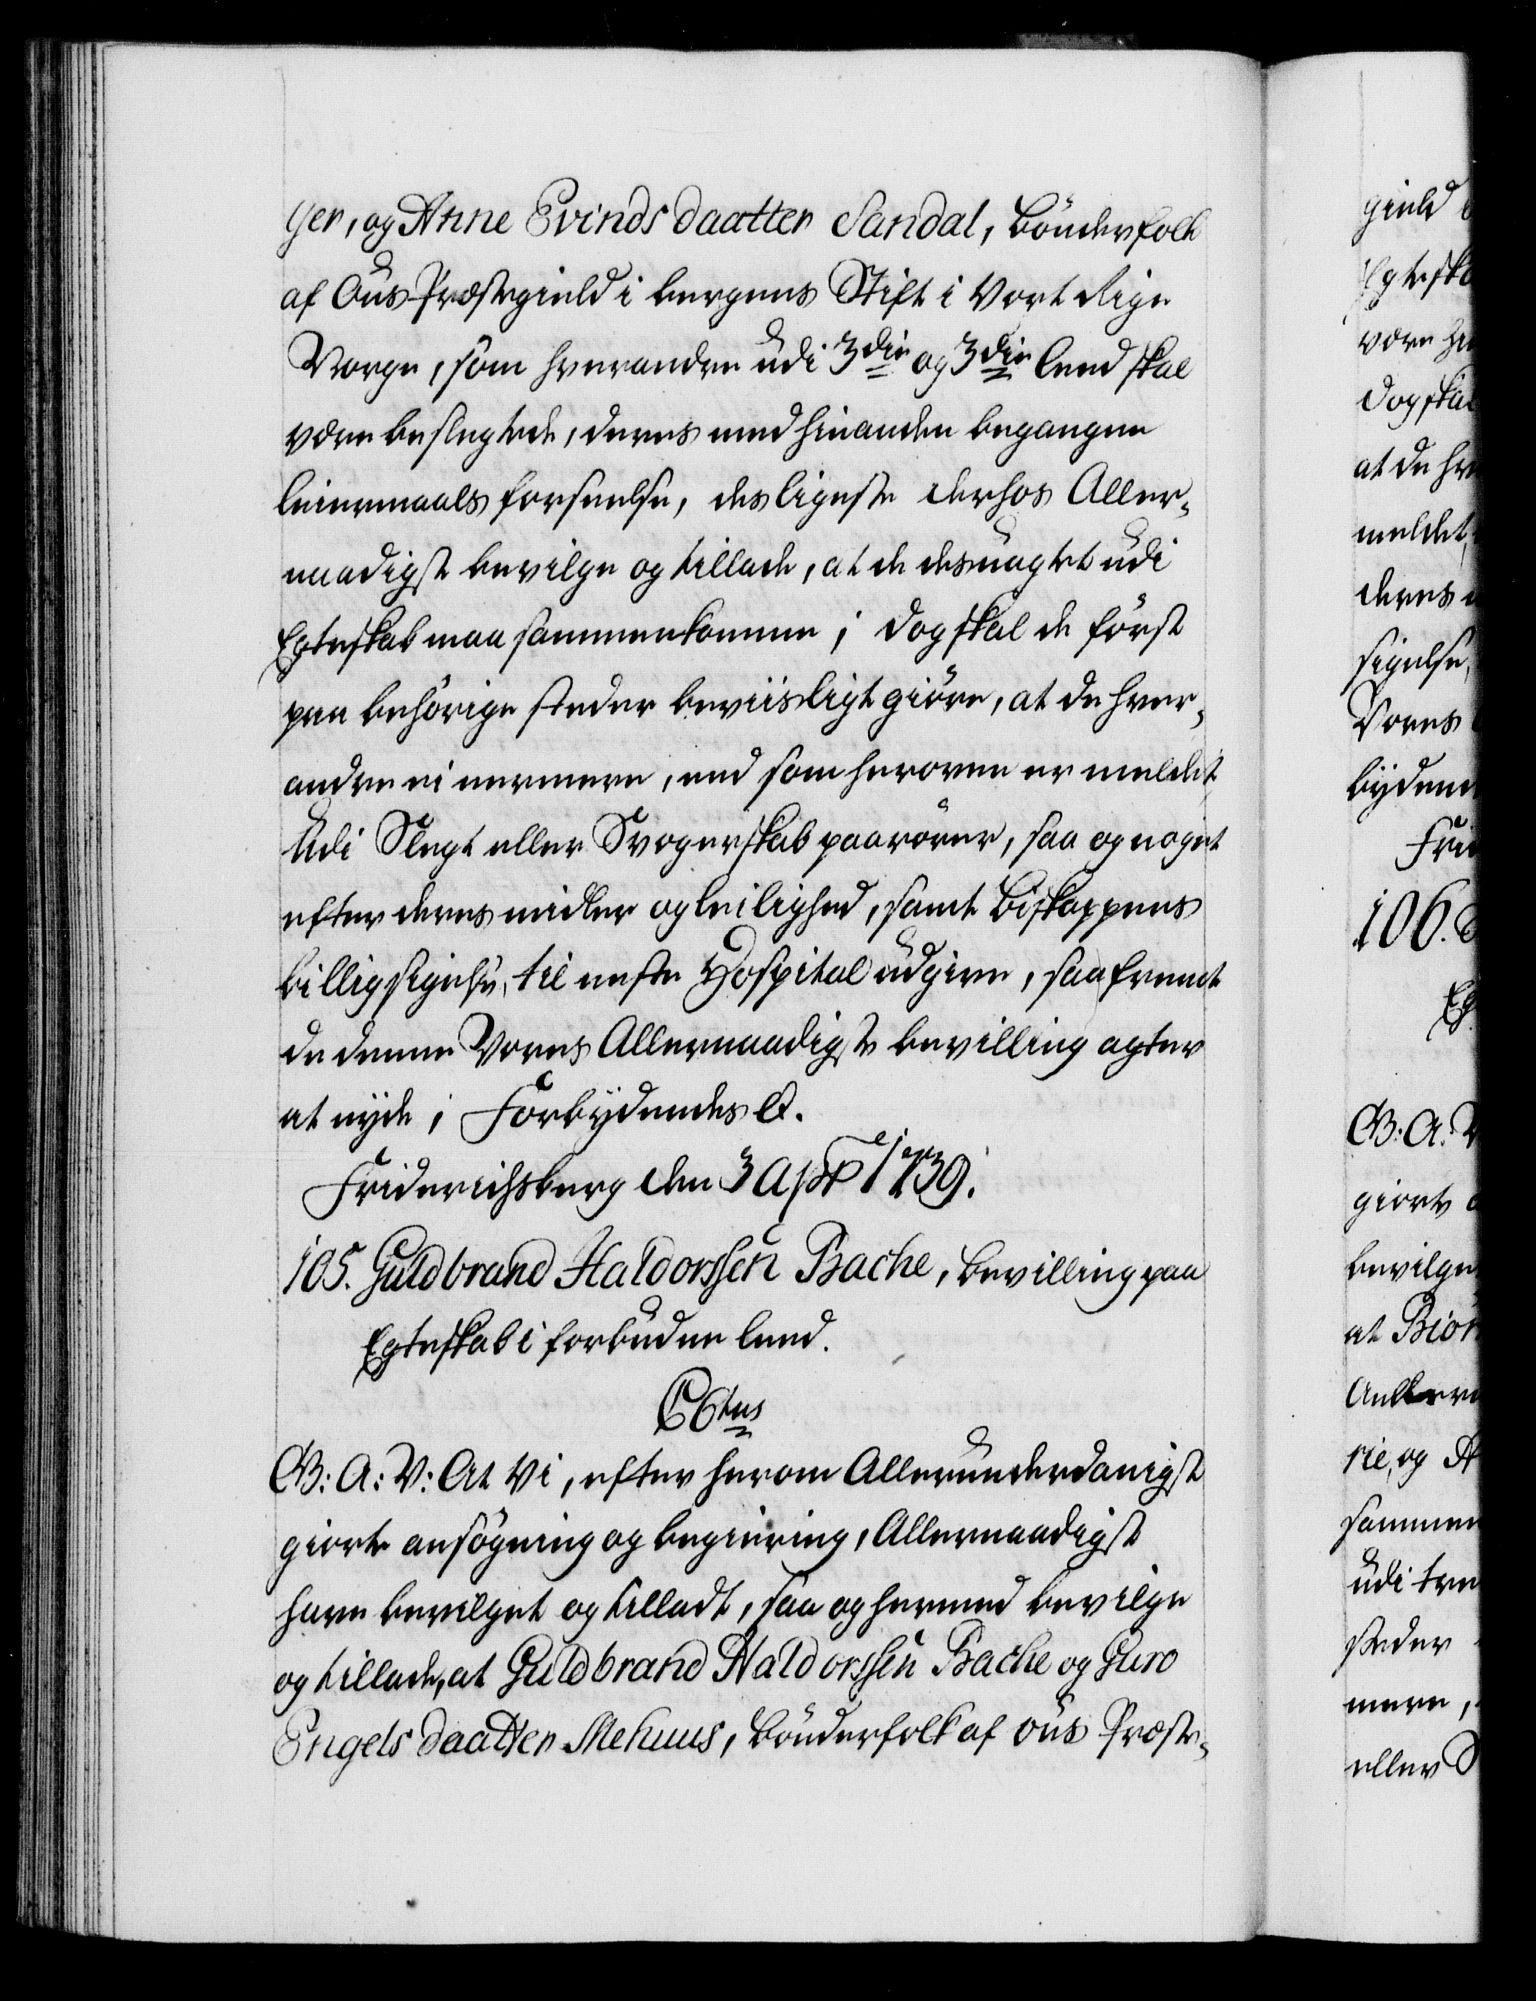 ger, og Anne Evinds daatter Sandal, bönderfolk
af Ous Præstegield i bergens Stift i Vort Rige
Norge, som hverandre udi 3die og 3die leed skal
være beslegtede, deres med hinanden begangne
leiermaals forseelse, desligeste derhos Aller-
naadigst bevilge og tillade, at de desuagtet udi
Egteskab maa sammenkomme; dog skal de først
paa behörige steder beviisligt giöre, at de hver-
andre ei nermere, end som heroven er meldet,
Udi Slegt eller Svogerskab paarörer, saa og noget
efter deres midler og leilighed, samt biskoppens
billigsigelse, til neste Hospital udgive, saafremt
de denne Vores Allernaadigste bevilling agter
at nyde; Forbydendes &.
Friderichsberg den 3 April 1739.
105. Guldbrand Haldorssen Bache, bevilling paa
Egteskab i forbuden leed.
C 6tus
G: A: V: At Vi, efter herom Allerunderdanigst
giorte ansögning og begiering, Allernaadigst
have bevilget og tilladt, saa og hermed bevilge
og tillade, at Guldbrand Haldorssen Bache og Guro
Engels daatter Mehuus, bönderfolk af Ous Præste-
gield
Egteska
være
dog skal
at de hve
meldet,
deres
sigelse,
Vores
bydende
Fri
106.
Eg
G: A: V
giorte
bevilge
at Biör
rie, og A
sammen
udi tre
steder
mere,
eller S